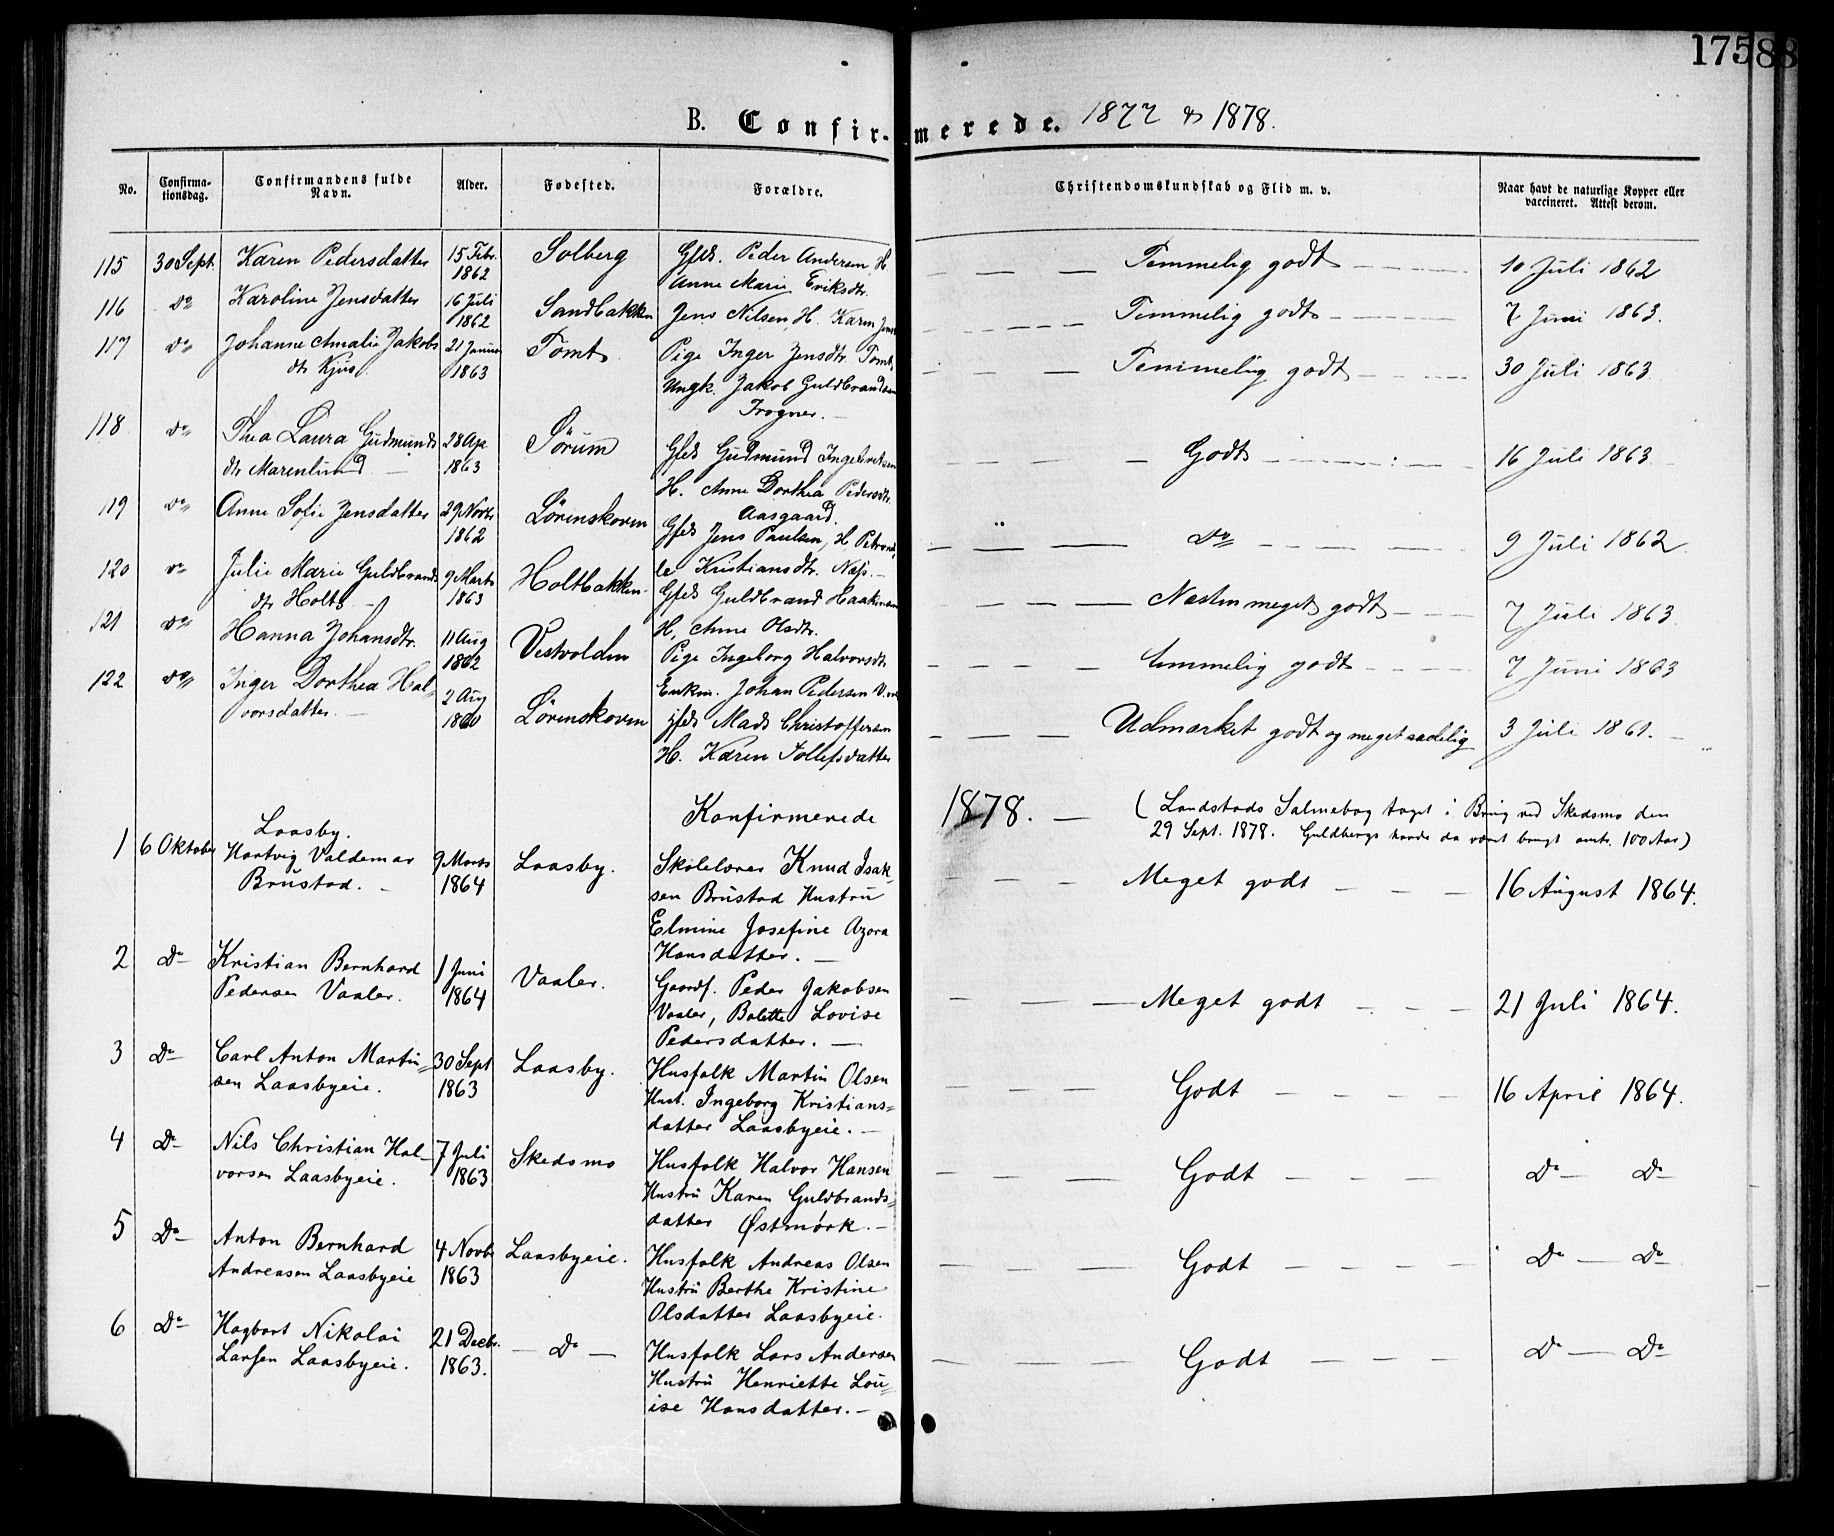 17588
B. Confirmerede. 1877 & 1878.
No. Confirmationsdag. Confirmandens fulde Navn. Alder. Fødested. Forældre. Christendomskundskab og Flid m. v. Naar havt de naturlige Kopper eller vaccineret. Attest derom.
115 30 Sept. Karen Pedersdatter 15 Febr. 1862 Solberg Gfld. Peder Andersen H. — — — Temmelig godt — 10 Juli 1862
Anne Marie Eriksdtr.
116 Do Karoline Jensdatter 16 Juli 1862 Sandbakken Jens Nilsen, H. Karen — — — Temmelig godt — 7 Juni 1863.
117 Do Johanne Amalie Jakobs 21 Januar 1863 Tomt Pige Inger Jensdtr. Tomt, — — — Temmelig godt — 30 Juli 1863
dtr Kjus. Ungk. Jakob Guldbrandsen
Trogner. —
118 Do Thea Laura Gudmunds 28 Ap 1863 Sørum Gfld Gudmund Ingebretsen — — — Godt — 16 Juli 1863
dtr Marenlund — H. Anne Dorthea Pedersdtr.
Aasgaard.
119 Do Anne Sofie Jensdatter 29 Novbr 1862 Lörenskoven Gfld Jens Paulsen, H — — — Do — 9 Juli 1862
Kristiansdtr. Næss. —
120 Do Julie Marie Guldbrands 9 Marts 1863 Holtbakken Gfld Guldbrand Haakensen — — — Næsten meget godt — 7 Juli 1863
dtr Holt. — H, Anne Olsdtr.
121 Do Hanna Johansdtr. 11 Aug 1862 Vestvolden Pige Ingeborg Halvorsdtr — — — temmelig godt — 7 Juni 1863
Enkm. Johan Pedersen
122 Do Inger Dorthea Hal- 2 Aug 1860 Lörenskoven Mads Christoffersen — — — Udmærket godt og meget sædelig 3 Juli 1861. —
vorsdatter. — H. Karen Tollefsdatter
Konfirmerede 1878. — (Landstads Salmebog taget i Brug ved Skedsmo den
29 Sept. 1878. Guldbergs havde da været brugt omtr. 100 Aar)
Laasby.
1 6 Oktober Hartvig Valdemar 9 Marts 1864 Laasby. Skolelærer Knud Isak- — — — Meget godt — — — 16 August 1864.
Brustad. — sen Brustad Hustru
Elmine Josefine Azora
Hansdatter. —
2 Do Kristian Bernhard 1 Juni 1864 Vaaler. Gaardf. Peder Jakobsen — — — Meget godt — — — 21 Juli 1864.
Pedersen Vaaler. Vaaler, Bolette Lovise
Pedersdatter. —
3 Do Carl Anton Martin= 30 Sept 1863 Laasby. Husfolk Martin Olsen — — — Godt — — — 16 April 1864.
sen Laasbyeie. Hust. Ingeborg Kristians=
datter Laasbyeie. —
4 Do Nils Christian Hal- 7 Juli 1863 Skedsmo Husfolk Halvor Hansen — — — Godt — — — Do — Do
vorsen Laasbyeie. Hustru Karen Guldbrands=
datter Østmørk. —
5 Do Anton Bernhard 4 Novb. 1863 Laasbyeie. Husfolk Andreas Olsen — — — Godt — — — Do — Do
Andreasen Laasbyeie Hustru Berthe Kristine
Olsdatter Laasbyeie.
6 Do Hagbart Nikolai 21 Decbr. 1863. — Do — Husfolk Lars Andersen — — — Godt — — — Do — Do
Larsen Laasbyeie. Hustru Henriette Lou=
ise Hansdatter. —